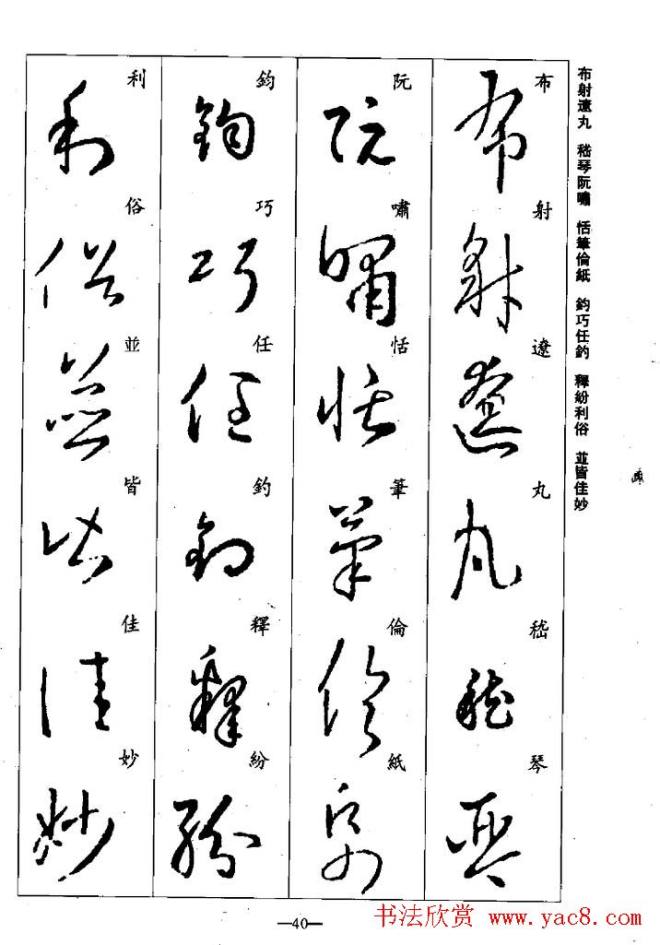 布射遼丸 嵇琴阮嘯 恬筆倫紙 鈞巧任釣 釋紛利俗 並皆佳妙
布射遼丸嵇琴
阮嘯恬筆倫紙
鈞巧任釣釋紛
利俗並皆佳妙
—40—
书法欣赏 www.yac8.com